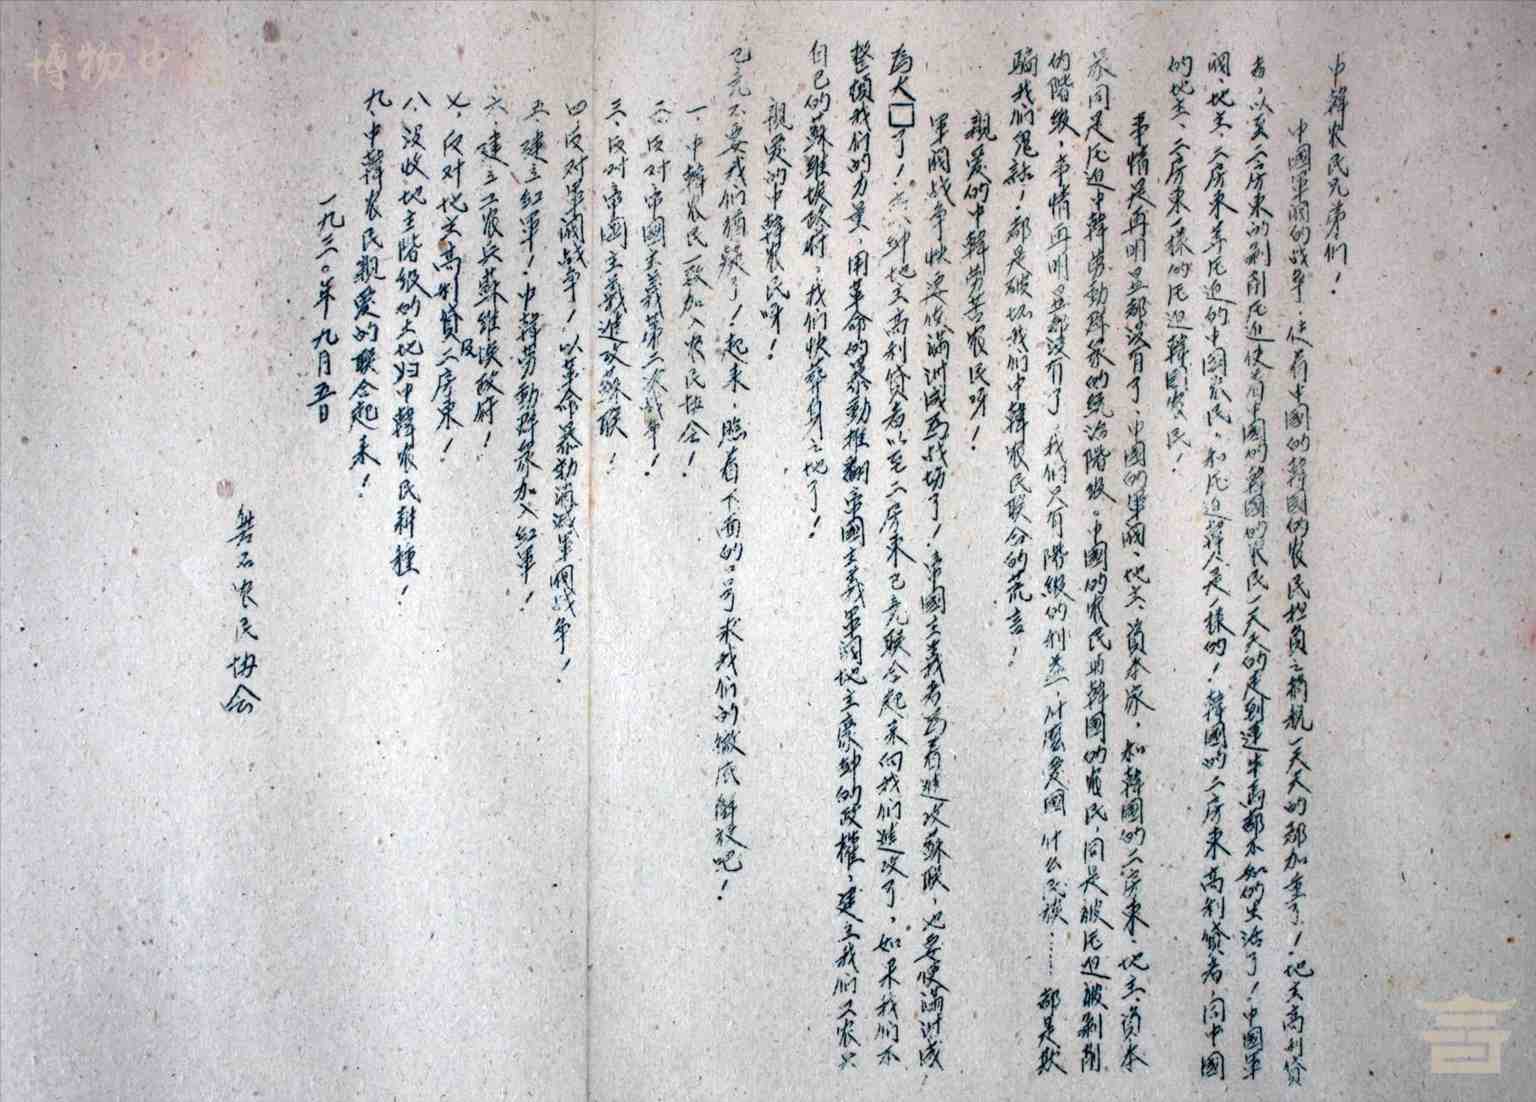 中韓农民兄弟们！
中國軍阀的战争，使着中國的韓國的农民担负之捐税一天天的都加重了！地主高利貸
者，以至二房東的剝削压迫使着中國的韓國的农民一天天的走到連牛馬都不如的生活了！中國軍
阀、地主、二房東等压迫的中國农民，和压迫韓人是一樣的！韓國的二房東高利貸者，同中國
的地主、二房東一樣的压迫韓國农民！
事情是再明显都沒有了，中國的軍阀、地主、資本家，和韓國的二房東、地主、資本
家同是压迫中韓劳動群众的統治階级。中國的农民与韓國的农民，同是被压迫被剝削
的階级，事情再明显都沒有了，我们只有階级的利益，什麽爱國 什么民族……都是欺
騙我们鬼話！都是破坏我们中韓农民联合的荒言！
親爱的中韓劳苦农民呀！
軍阀战争快要使滿洲成為战場了！帝國主義者為着進攻蘇联，也要使滿洲成
為火□了！豪紳地主高利貸者以至二房東已竟联合起来向我们進攻了，如果我们不
整頓我们的力量，用革命的暴動推翻帝國主義軍阀地主豪紳的政權，建立我们工农兵
自己的蘇維埃政府，我们快葬身之地了！
親爱的中韓农民呀！
已竟不要我们犹疑了！起来，照着下面的口号求我们的徹底解放吧！
一、中韓农民一致加入农民协会！
二、反对帝國主義第二次战争！
三、反对帝國主義進攻蘇联！
四、反对軍阀战争！以革命暴動消滅軍阀战争！
五、建立红軍！中韓劳動群众加入红軍！
六、建立工农兵蘇維埃政府！
七、反对地主高利貸及二房東！
八、沒收地主階级的土地归中韓农民耕種！
九、中韓农民親爱的联合起来！
一九三〇年九月五日
磐石农民协会
博物中國